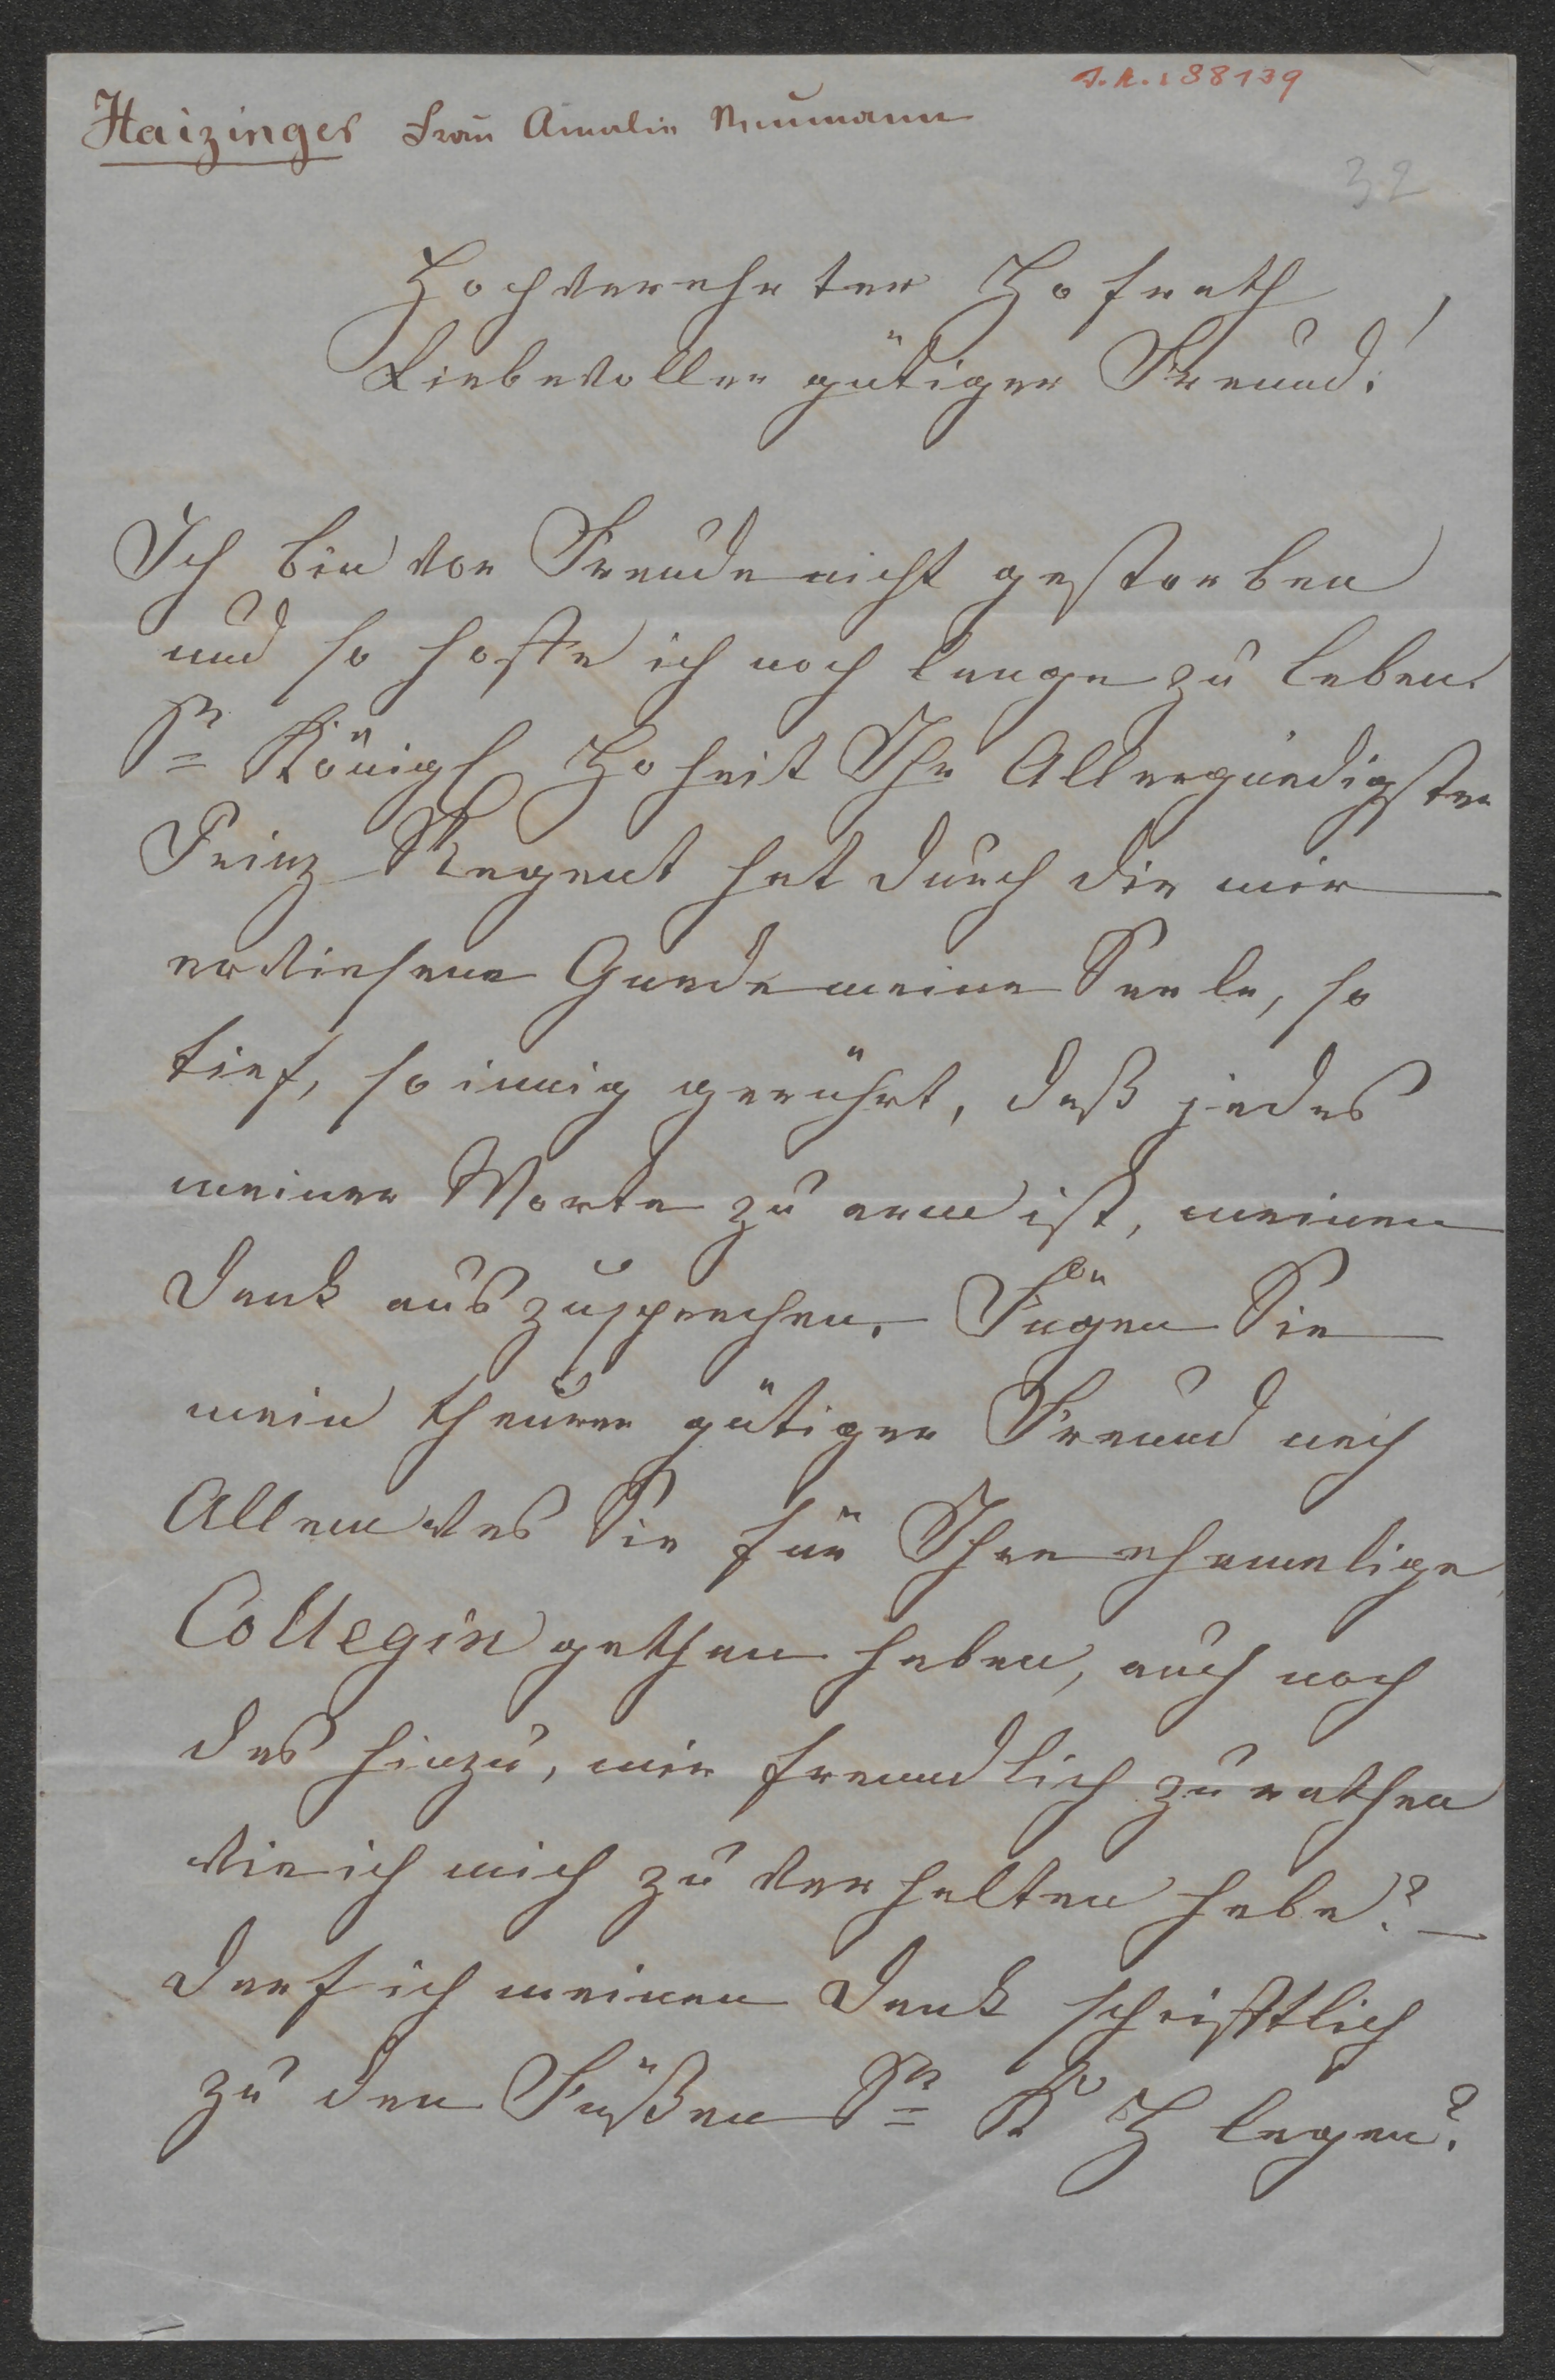 J.N. 88139
Haizinger Frau Amalie Neumann
32
Hochverehrter Hofrath
Liebevoller gütiger Freund!
Ich bin vor Freude nicht gestorben
und so hoffe ich noch lange zu leben.
Sr Königl Hoheit Ihr Allergnädigster
Prinz Regent hat durch die mir
erwiesene Gnade meine Seele, so
tief, so innig gerührt, daß jedes
meiner Worte zu arm ist, meinen
Dank auszusprechen. Fügen Sie
mein theurer gütiger Freund nach
Allem was Sie für Ihre ehemalige
Collegin gethan haben, auch noch
das hinzu, mir freundlich zu rathen
wie ich mich zu verhalten habe? —
Darf ich meinen Dank schriftlich
zu den Füßen Sr K H legen?